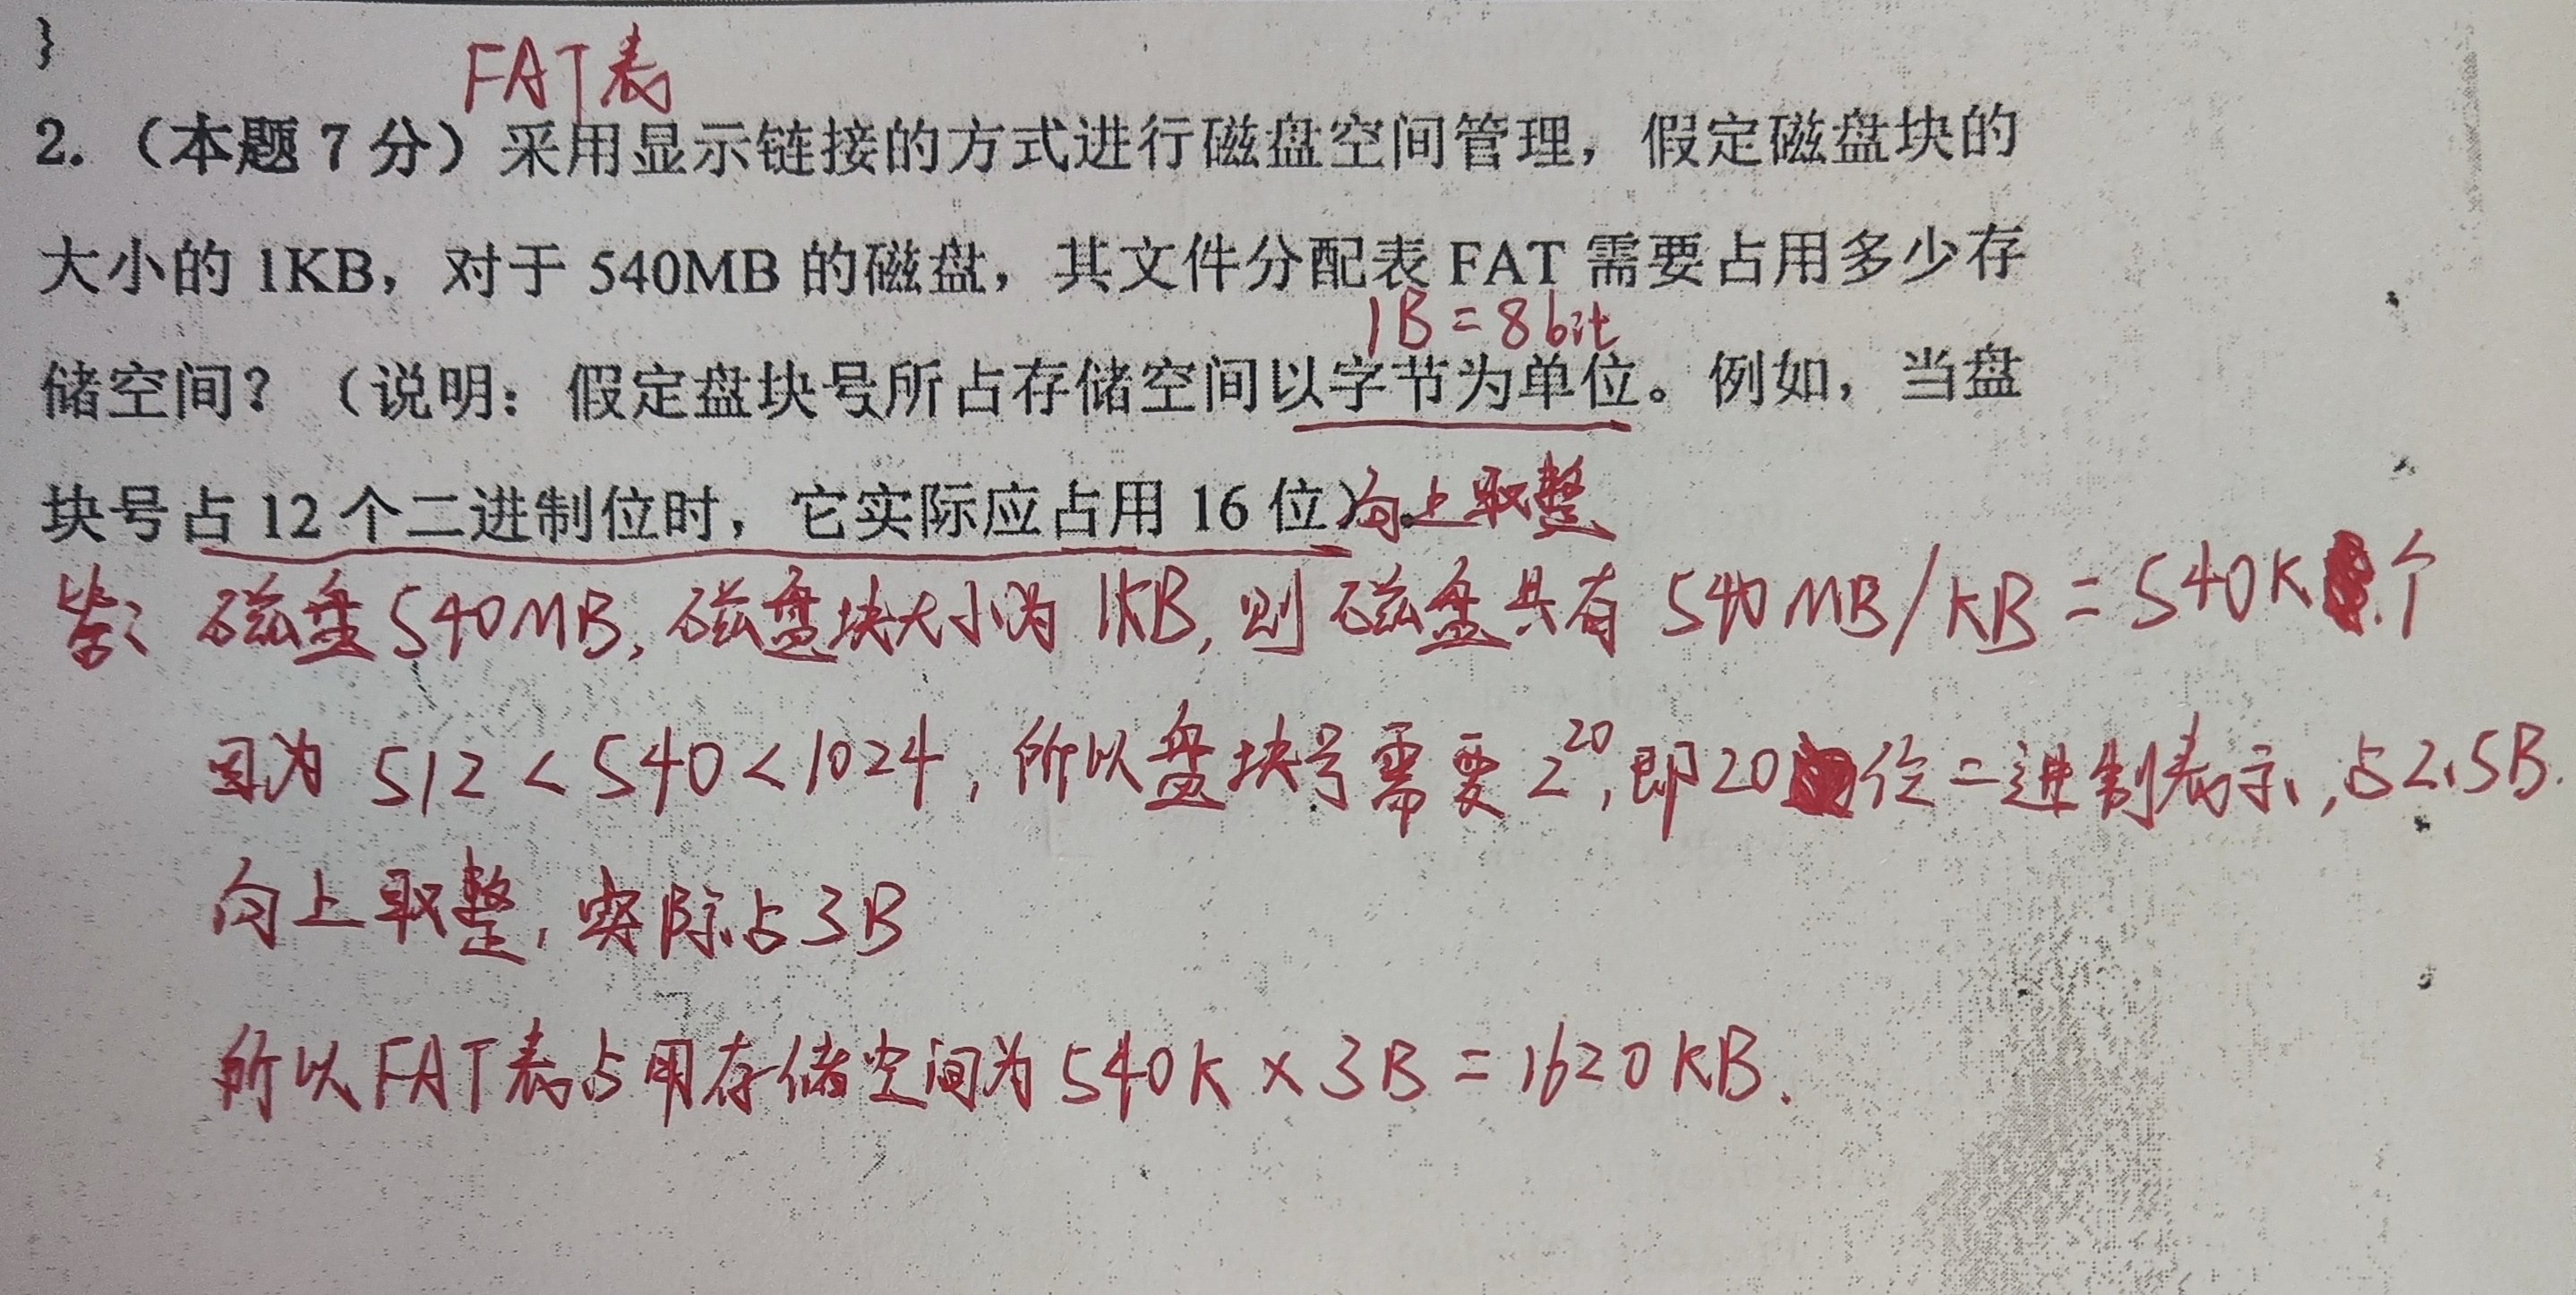 }
FAT表
2.（本题 7 分）采用显示链接的方式进行磁盘空间管理，假定磁盘块的
大小的 1KB，对于 540MB 的磁盘，其文件分配表 FAT 需要占用多少存
1B=8bit
储空间？（说明：假定盘块号所占存储空间以字节为单位。例如，当盘
块号占 12 个二进制位时，它实际应占用 16 位）。向上取整
答: 磁盘540MB,磁盘块大小为 1KB,则磁盘共有 540MB/KB=540K个
因为 512<540<1024,所以盘块号需要 2^20,即20位二进制表示,占2.5B.
向上取整,实际占3B
所以FAT表占用存储空间为540K×3B=1620KB.